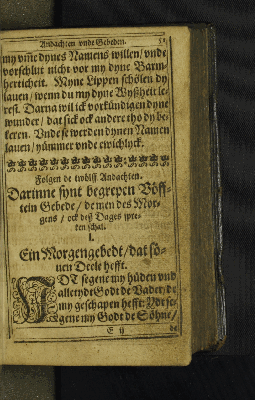 Andachten vnde Gebeden. 51
my vmme dynes Namens willen / vnde
vorschlut nicht vor my dyne Barm-
herticheit. Myne Lippen schölen dy
lauen / wenn du my dyne Wyßheit le-
rest. Darna wil ick vorkündigen dyne
wunder / dat sick ock andere tho dy be-
keren. Vnde se werden dynen Namen
lauen / yümmer vnde ewichlyck.
Folgen de twölff Andachten.
Darinne synt begrepen Vöff-
tein Gebede / de men des Mor-
gens / ock deß Dages spre-
ken schal.
I.
Ein Morgengebedt / dat sö-
uen Deele hefft.
GODT segene my hüden vnd
alletydt Godt de Vader / de
my geschapen hefft: Vor se-
gene my Godt de Söhne /
E ij de